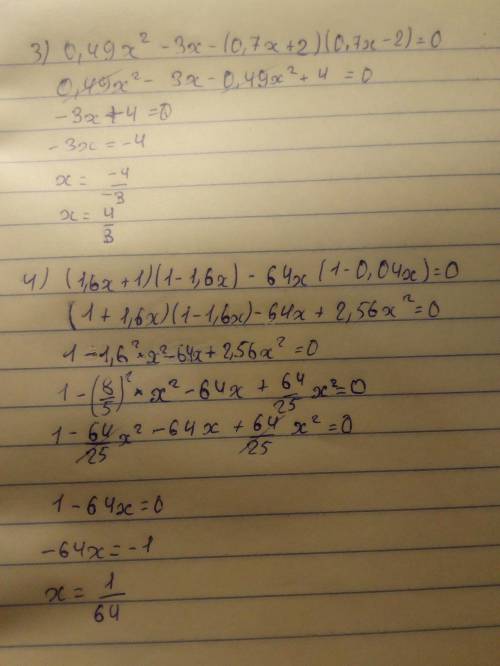 3) 0,49x² - 3x - (0,7x+2)(0,7x-2)=0
0,49x² - 3x - 0,49x² + 4 = 0
-3x+4=0
-3x = -4
x = -4/-3
x = 4/3
4) (1,6x+1)(1-1,6x) - 64x (1-0,04x)=0
(1+1,6x)(1-1,6x)-64x + 2,56x²=0
1-1,6²*x²-64x+2,56x²=0
1-(8/5)²*x²-64x+64/25x²=0
1-64/25x²-64x+64/25x²=0
1-64x=0
-64x=-1
x=1/64